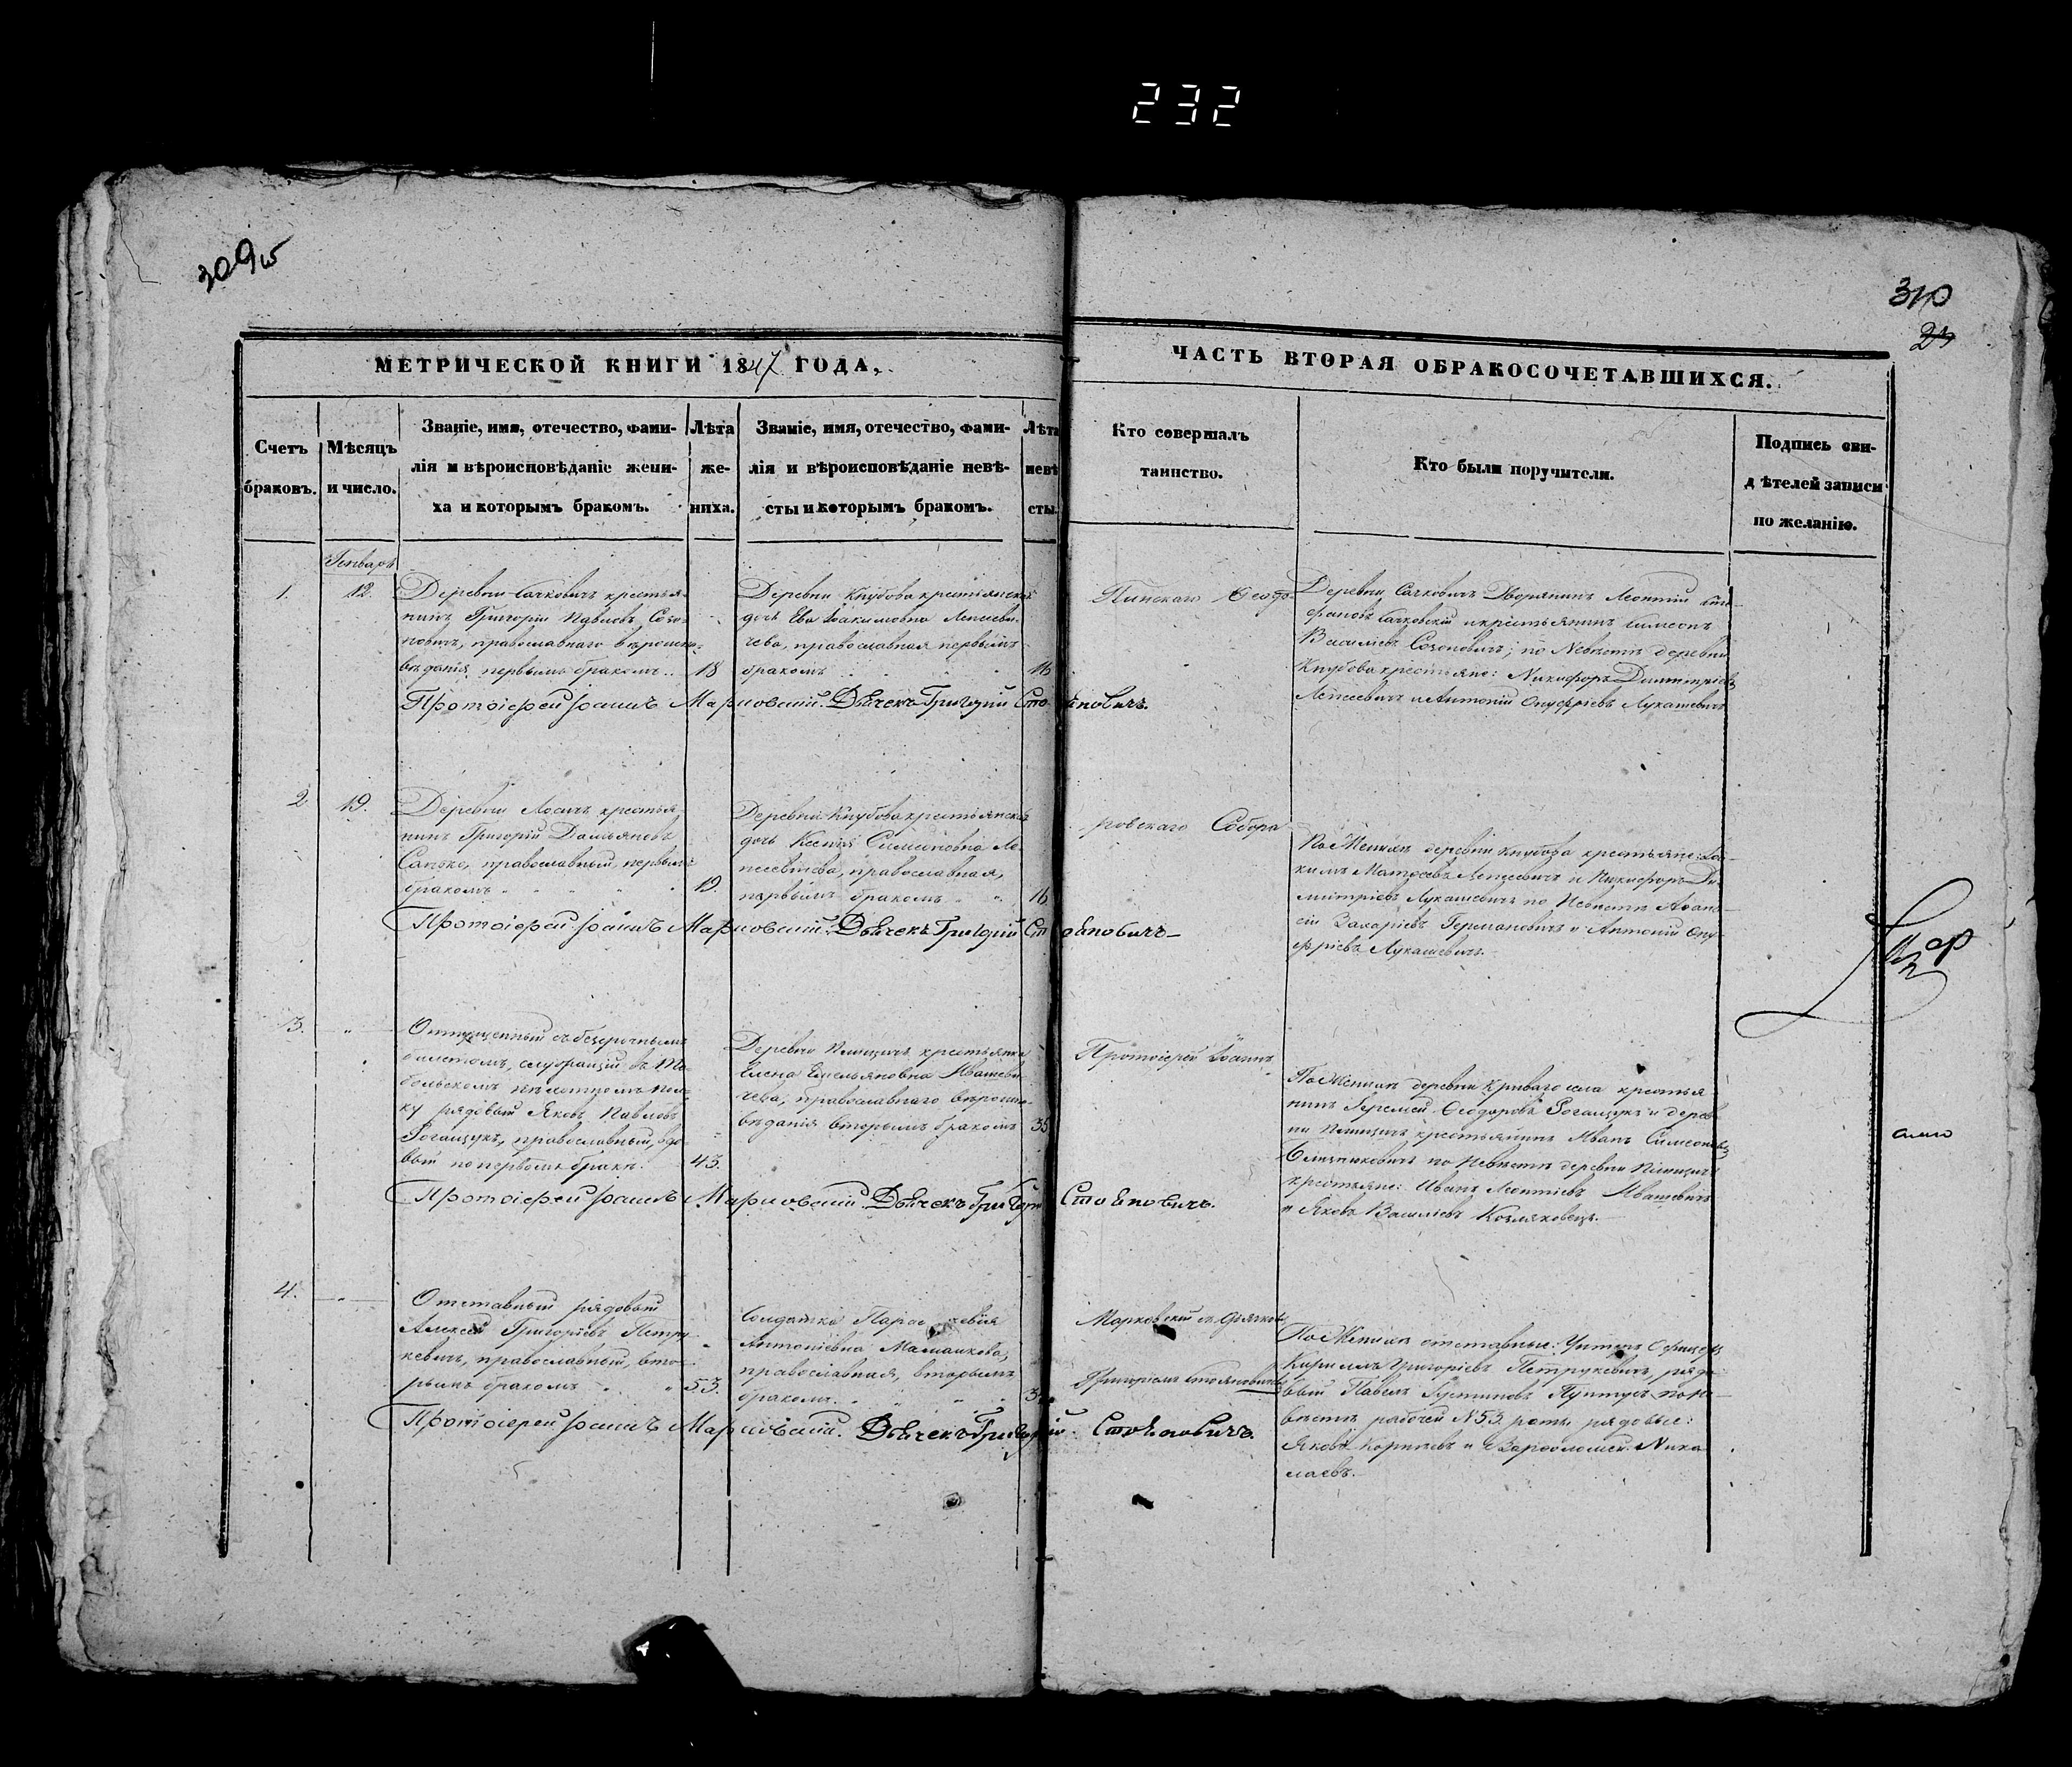 232
309об
310
24
МЕТРИЧЕСКОЙ КНИГИ 1847 ГОДА,
ЧАСТЬ ВТОРАЯ ОБРАКОСОЧЕТАВШИХСЯ.
Счетъ
браковъ.
Мѣсяцъ
и число.
Званіе, имя, отечество, фами-
лія и вѣроисповѣданіе жени-
ха и которымъ бракомъ.
Лѣта
же-
ниха.
Званіе, имя, отечество, фами-
лія и вѣроисповѣданіе невѣ-
сты и которымъ бракомъ.
Лѣта
невѣ
сты.
Кто совершалъ
таинство.
Кто были поручители.
Подпись сви-
дѣтелей записи
по желанію.
Генварь
1.
12.
Деревни Сачковичъ крестья-
нинъ Григорій Павловъ Созо-
новичъ, православнаго вѣроиспо-
вѣданія, первымъ бракомъ
18
Деревни Кнубова крестьянская
дочь Ева Іоакимовна Лепеševи-
чева, православная первымъ
бракомъ
16
Пинскаго Ѳеодо-
Деревни Сачковичъ Дворянинъ Леонтій Сте-
фановъ Сачковскій и крестьянинъ Симеонъ
Василіевъ Созоновичъ; по Невѣстѣ деревни
Кнубова крестьяне: Никифоръ Димитріевъ
и Антоній Онуфріевъ Лукашевичъ
Протоіерей Іоаннъ Марковскій. Дьячекъ Григорій Стояновичъ.
2
19.
Деревни Лосичъ крестья-
нинъ Григорій Дамьяновъ
православный, первымъ
бракомъ
19.
Деревни Кнубова крестьянская
дочь Ксенія Симеоновна
православная,
первымъ бракомъ
16
ровскаго Собора
По Женихѣ деревни Кнубова крестьяне: Іоа-
кимъ и Никифоръ Ди-
митріевъ Лукашевичъ по Невѣстѣ Аѳана-
сій Захаріевъ Германовичъ и Антоній Ону-
фріевъ Лукашевичъ.
Протоіерей Іоаннъ Марковскій. Дьячекъ Григорій Стояновичъ
3.
"
Отпущенный съ безсрочнымъ
билетомъ, служащій въ То-
больскомъ пѣхотномъ пол-
ку рядовый Яковъ Павловъ
Рогацукъ, православный, вдо-
вый по первомъ бракѣ.
43.
Деревни Плещичъ крестьянка
Елена Емельяновна Ивашеви-
чева, православнаго вѣроиспо-
вѣданія вторымъ бракомъ
35
Протоіерей Іоаннъ
По Женихѣ деревни Криваго села крестья-
нинъ Іеремей Ѳеодоровъ Рогацукъ и дерев-
ни Плещичъ крестьянинъ Иванъ Симеоновъ
по Невѣстѣ деревни Плещичъ
крестьяне: Иванъ Леонтіевъ Ивашевичъ
и Яковъ Василіевъ Козляковецъ.
Протоіерей Іоаннъ Марковскій. Дьячекъ Григорій Стояновичъ.
4.
"
Отставный рядовый
Алексей Григоріевъ Петру-
кевичъ, православный, вто-
рымъ бракомъ
53.
Солдатка Параскевія
Антоніевна Мамаикова,
православная, вторымъ
бракомъ.
Марковскій съ дьячкомъ
Григоріемъ Стояновичемъ
По Женихѣ отставные: Унтеръ Офицеръ
Кириллъ Григоріевъ Петрукевичъ, рядо-
вый Павелъ Іустиновъ по Не-
вѣстѣ рабочей №53 роты рядовые:
Яковъ Корнѣевъ и Варѳоломей Нико-
лаевъ.
Протоіерей Іоаннъ Марковскій. Дьячекъ Григорій Стояновичъ.